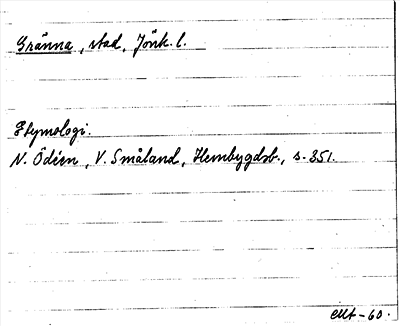 Gränna, stad, Jönk. l.
Etymologi.
N. Ödéen, V. Småland, Hembygdsb., s. 351.
-60.